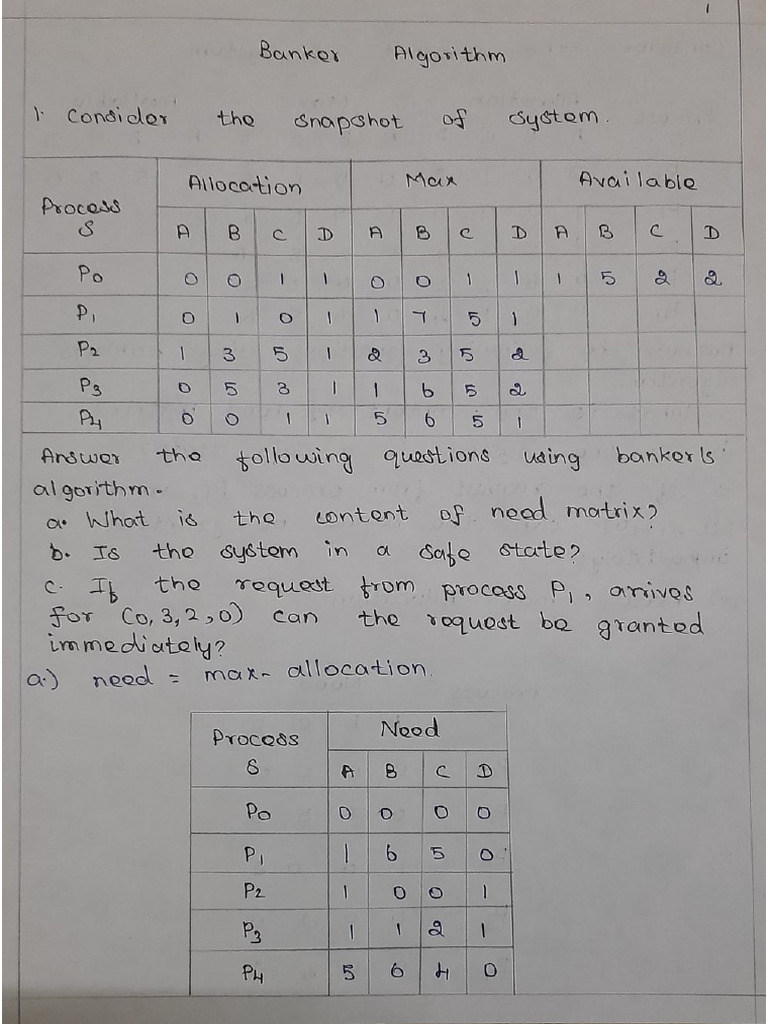 1
Banker Algorithm
1. Consider the snapshot of system.
Process S Allocation Max Available
A B C D A B C D A B C D
P0 0 0 1 1 0 0 1 1 1 5 2 2
P1 0 1 0 1 1 7 5 1
P2 1 3 5 1 2 3 5 2
P3 0 5 3 1 1 6 5 2
P4 0 0 1 1 5 6 5 1
Answer the following questions using banker's
algorithm.
a. What is the content of need matrix?
b. Is the system in a safe state?
c. If the request from process P1, arrives
for (0,3,2,0) can the request be granted
immediately?
a.) need = max - allocation.
Process S Need
A B C D
P0 0 0 0 0
P1 1 6 5 0
P2 1 0 0 1
P3 1 1 2 1
P4 5 6 4 0